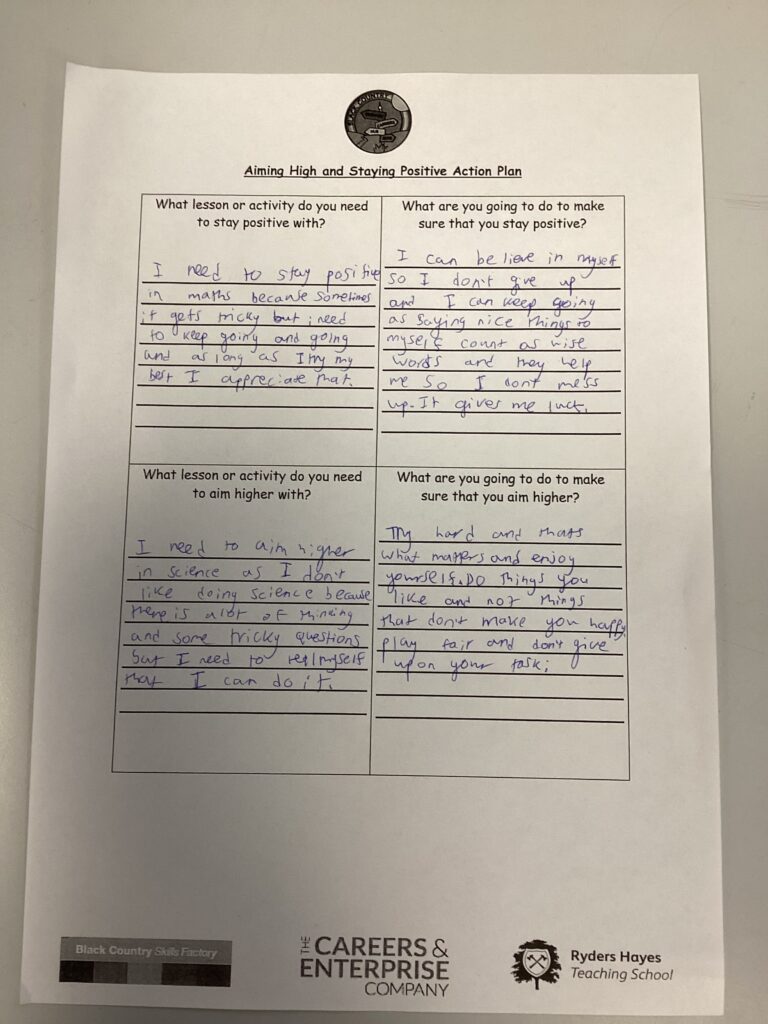 BLACK COUNTRY
Aiming High and Staying Positive Action Plan
What lesson or activity do you need
to stay positive with?
I need to stay positive
in maths because sometimes
it gets tricky but i need
to keep going and going
and as long as I try my
best I appreciate that.
What are you going to do to make
sure that you stay positive?
I can be lieve in myself
so I don't give up
and I can keep going
as saying nice things to
myself count as wise
words and they help
me so I dont mess
up. It gives me luck.
What lesson or activity do you need
to aim higher with?
I need to aim higher
in science as I don't
like doing science because
there is alot of thinking
and some tricky questions
but I need to tell myself
that I can do it.
What are you going to do to make
sure that you aim higher?
Try hard and thats
what matters and enjoy
yourself. Do things you
like and not things
that don't make you happy.
play fair and don't give
upon your task;
Black Country Skills Factory
THE CAREERS &
ENTERPRISE
COMPANY
Ryders Hayes
Teaching School